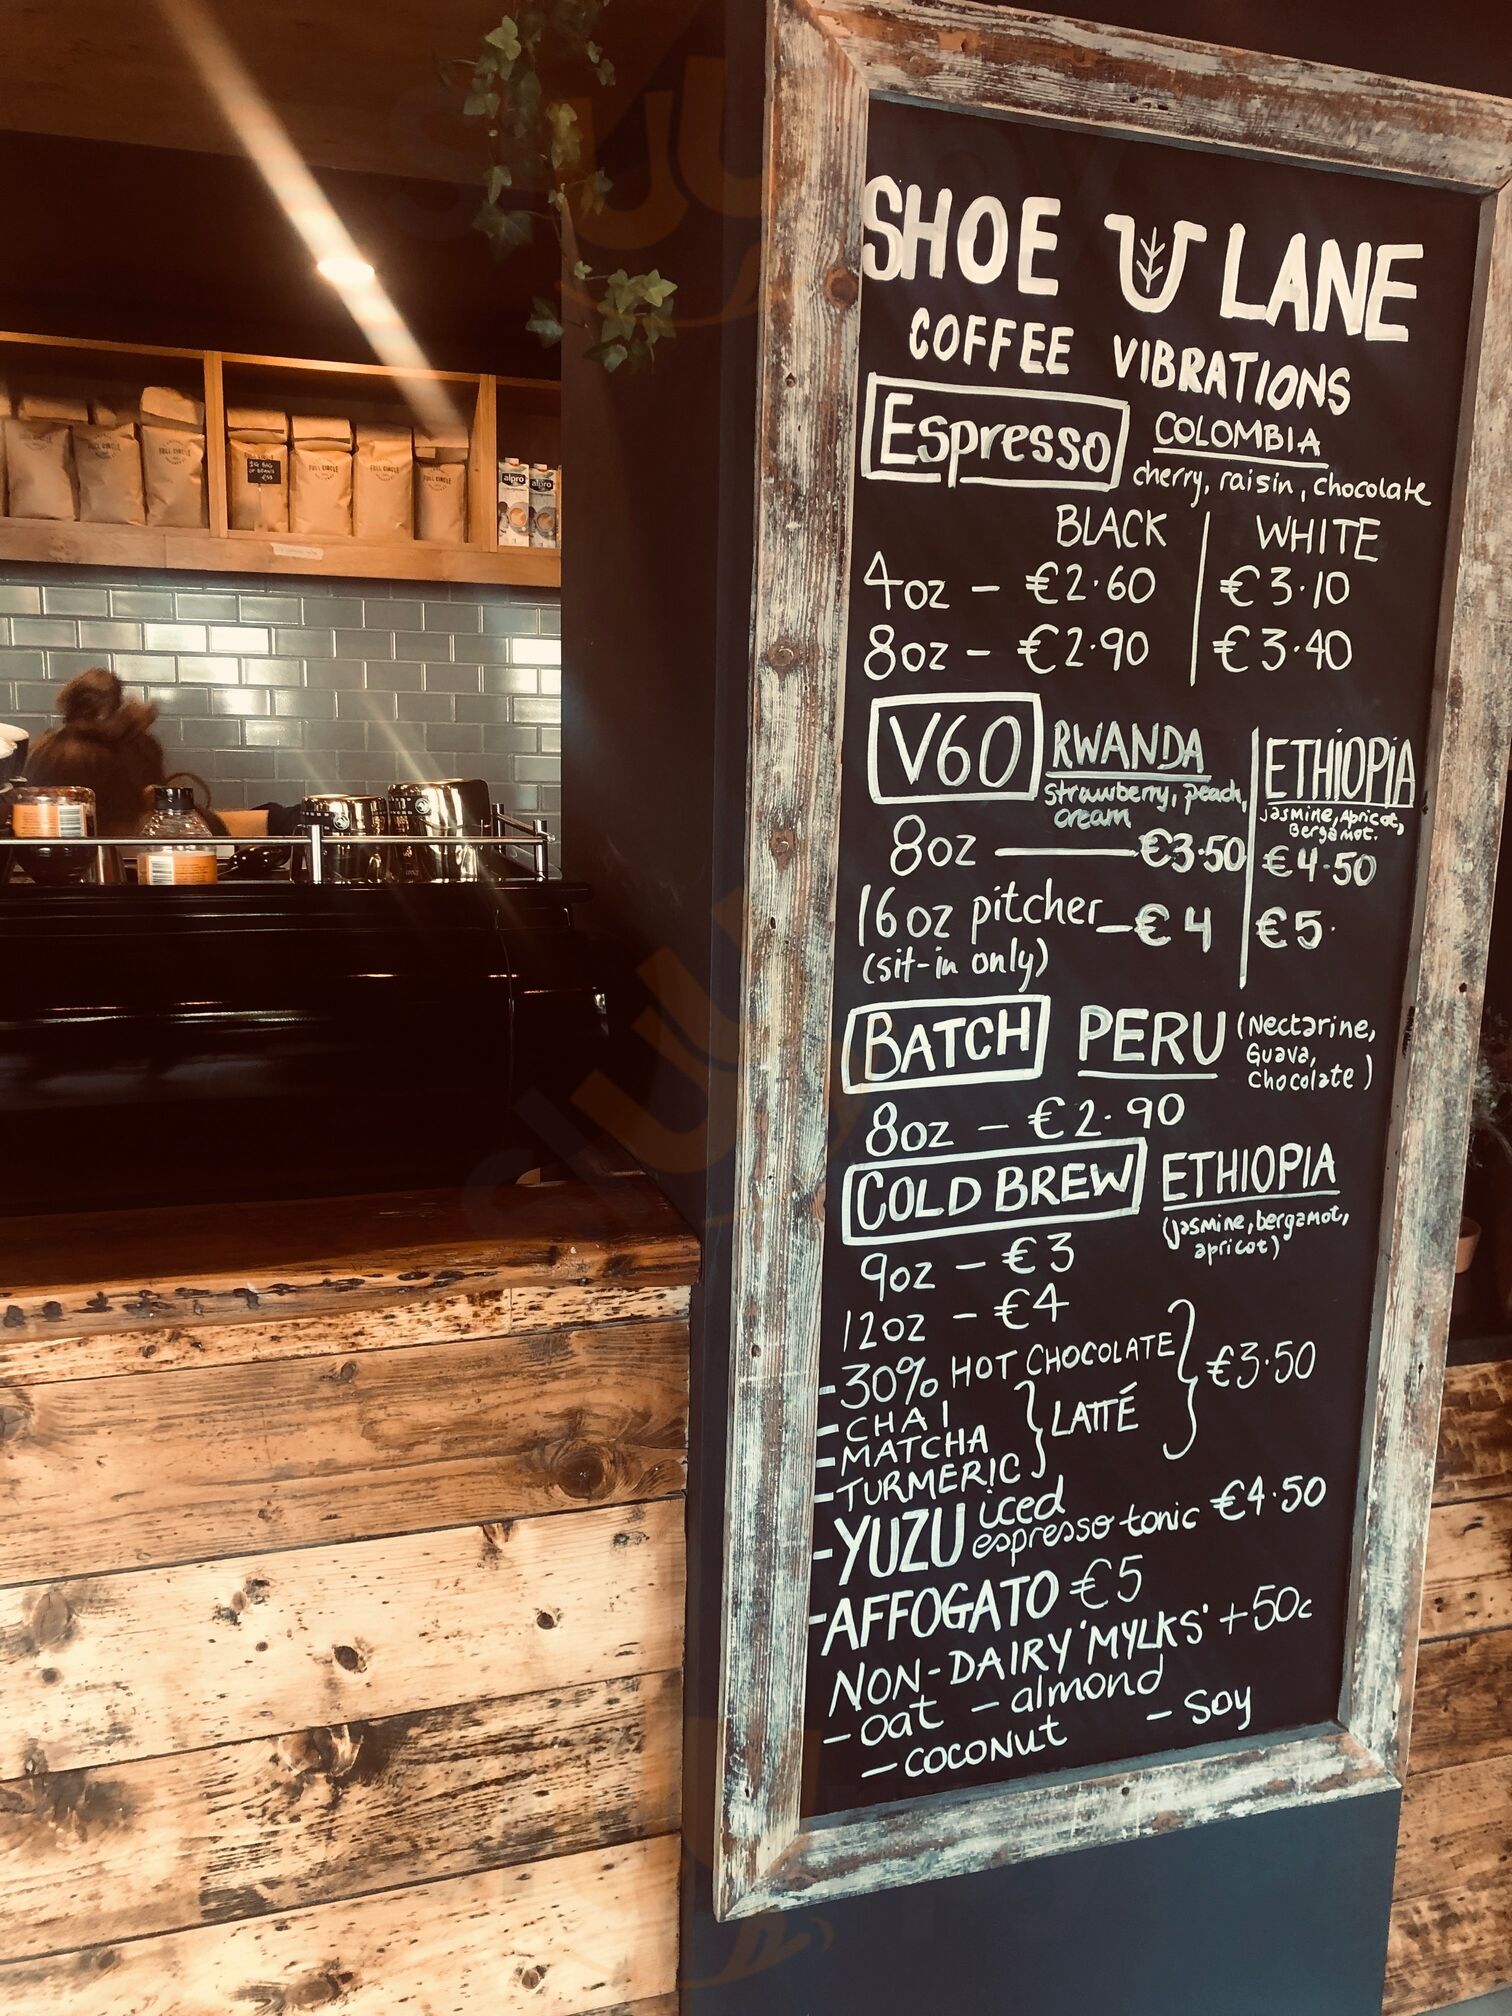 SHOE LANE
COFFEE VIBRATIONS
Espresso COLOMBIA
cherry, raisin, chocolate
BLACK | WHITE
4oz - €2.60 | €3.10
8oz - €2.90 | €3.40
V60 RWANDA | ETHIOPIA
strawberry, peach, cream | Jasmine, Apricot, Bergamot.
8oz — €3.50 | €4.50
16oz pitcher - €4 | €5.
(sit-in only)
BATCH PERU (Nectarine, Guava, Chocolate)
8oz - €2.90
COLD BREW ETHIOPIA
(Jasmine, bergamot, apricot)
9oz - €3
12oz - €4
-30% HOT CHOCOLATE } €3.50
-CHAI
-MATCHA } LATTÉ
-TURMERIC
-YUZU iced espresso tonic €4.50
-AFFOGATO €5
NON-DAIRY 'MYLKS' +50c
-oat -almond
-coconut -soy
FULL CIRCLE
FULL CIRCLE
FULL CIRCLE
BAG OF BEANS
alpro
alpro